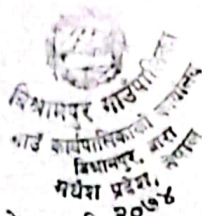 विश्रामपुर गाउँपालिका
गाउँ कार्यपालिकाको कार्यालय
विश्रामपुर, बारा
मधेश प्रदेश, नेपाल
२०७४